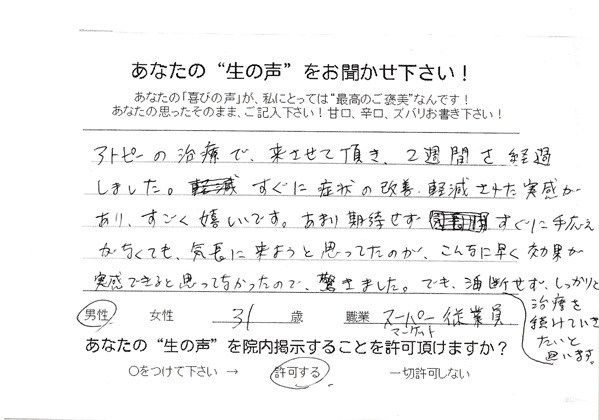 あなたの“生の声”をお聞かせ下さい！
あなたの「喜びの声」が、私にとっては“最高のご褒美”なんです！
あなたの思ったそのまま、ご記入下さい！甘口、辛口、ズバリお書き下さい！
アトピーの治療で、来させて頂き、2週間を経過
しました。すぐに症状の改善、軽減された実感が
あり、すごく嬉しいです。あまり期待せずすぐに手応え
がなくても、気長に来ようと思ってたのが、こんなに早く効果が
実感できると思ってなかったので、驚きました。でも、油断せず、しっかりと
治療を
続けていき
たいと
思います。
男性 女性 31 歳 職業 スーパーマーケット従業員
あなたの“生の声”を院内掲示することを許可頂けますか？
○をつけて下さい → 許可する 一切許可しない